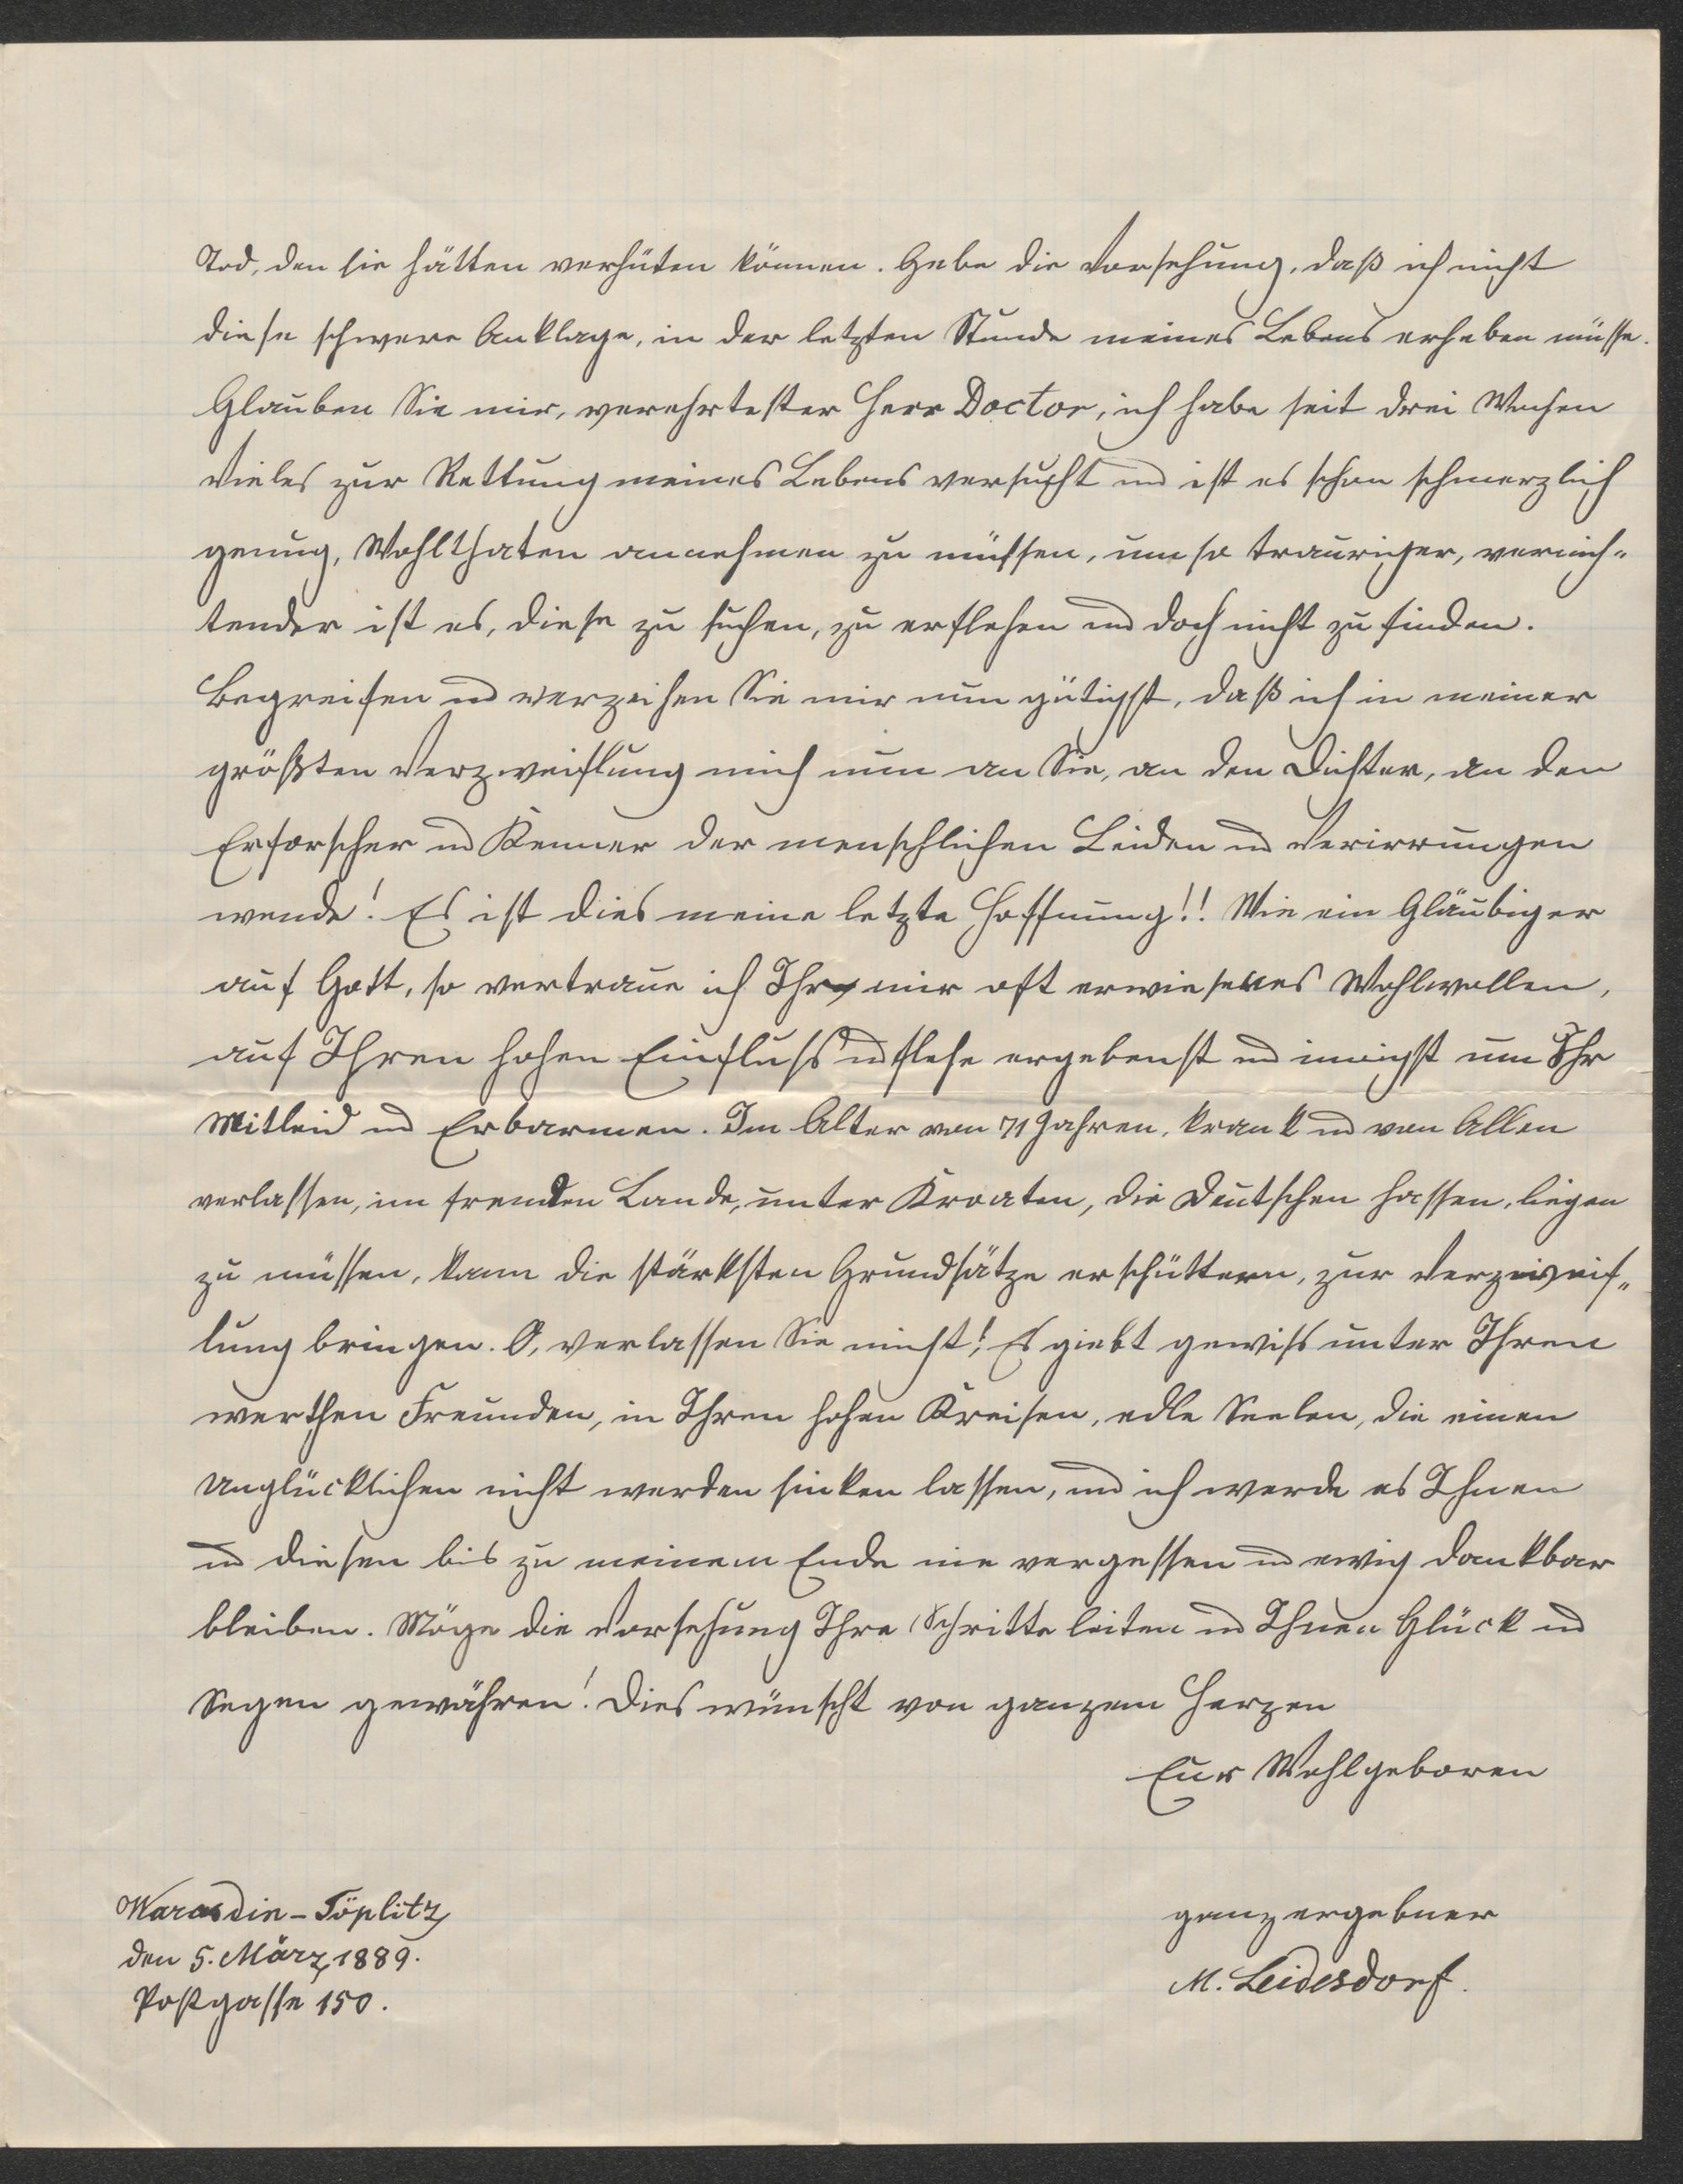 Tod, den sie hätten verhüten können. Gebe die Vorsehung, daß ich nicht
diese schwere Anklage, in der letzten Stunde meines Lebens erheben müsse.
Glauben Sie mir, verehrtester Herr Doctor, ich habe seit drei Wochen
Vieles zur Rettung meines Lebens versucht und ist es schon schmerzlich
genug, Wohlthaten annehmen zu müssen, um so trauriger, vernich-
tender ist es, diese zu suchen, zu erflehen und doch nicht zu finden.
Begreifen und verzeihen Sie mir nun gütigst, daß ich in meiner
größten Verzweiflung mich nun an Sie, an den Dichter, an den
Erforscher und Kenner der menschlichen Leiden und Verirrungen
wende! Es ist dies meine letzte Hoffnung!! Wie ein Gläubiger
auf Gott, so vertraue ich Ihr mir oft erwiesenes Wohlwollen,
auf Ihren hohen Einfluss und flehe ergebenst und innigst um Ihr
Mitleid und Erbarmen. Im Alter von 71 Jahren, krank und von Allen
verlassen, im fremden Lande, unter Kroaten, die Deutschen hassen, liegen
zu müssen, kann die stärksten Grundsätze erschüttern, zur Verzweif-
lung bringen. O, verlassen Sie nicht! Es giebt gewiss unter Ihren
werthen Freunden, in Ihren hohen Kreisen, edle Seelen, die einen
Unglücklichen nicht werden sinken lassen, und ich werde es Ihnen
und diesen bis zu meinem Ende nie vergessen und ewig dankbar
bleiben. Möge die Vorsehung Ihre Schritte leiten und Ihnen Glück und
Segen gewähren! Dies wünscht von ganzem Herzen
Euer Wohlgeboren
ganz ergebner
M. Leidesdorf.
Warasdin-Töplitz
den 5. März 1889.
Postgasse 150.